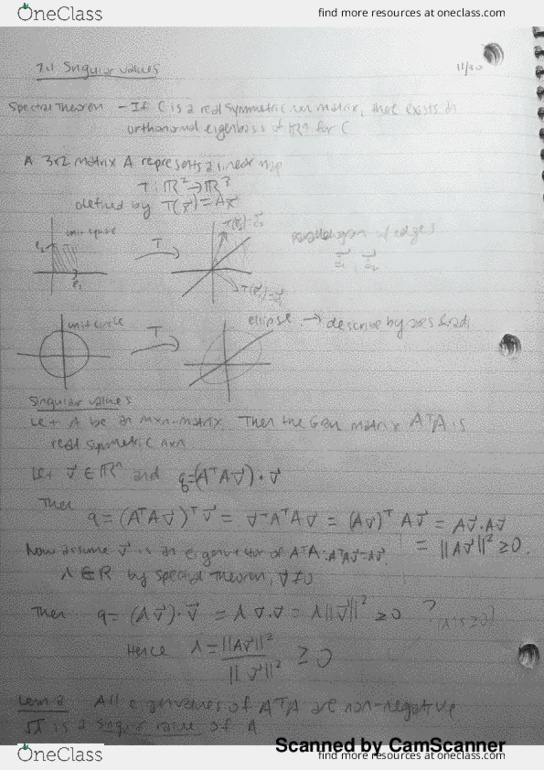 OneClass
find more resources at oneclass.com
7.1 Singular values
11/30
Spectral Theorem - If C is a real symmetric nxn matrix, there exists an
orthonormal eigenbasis of ℝⁿ for C
A 3x2 matrix A represents a linear map
T: ℝ² → ℝ³
defined by T(x⃗) = Ax⃗
unit square
T
parallelogram w/ edges
unit circle
T
ellipse → describe by axes & radii
Singular values
Let A be an mxn-matrix. Then the Gram matrix AᵀA is
real symmetric nxn
Let v⃗ ∈ ℝⁿ and q = (AᵀAv⃗) · v⃗
Then
q = (AᵀAv⃗)ᵀv⃗ = v⃗ᵀAᵀAv⃗ = (Av⃗)ᵀAv⃗ = Av⃗ · Av⃗
= ||Av⃗||² ≥ 0.
Now assume v⃗ is an eigenvector of AᵀA
λ ∈ ℝ by spectral theorem, v⃗ ≠ 0
Then q = (λv⃗) · v⃗ = λ v⃗ · v⃗ = λ||v⃗||² ≥ 0
Hence λ = ||Av⃗||² / ||v⃗||² ≥ 0
All eigenvalues of AᵀA are non-negative
√λ is a singular value of A
Scanned by CamScanner
OneClass
find more resources at oneclass.com